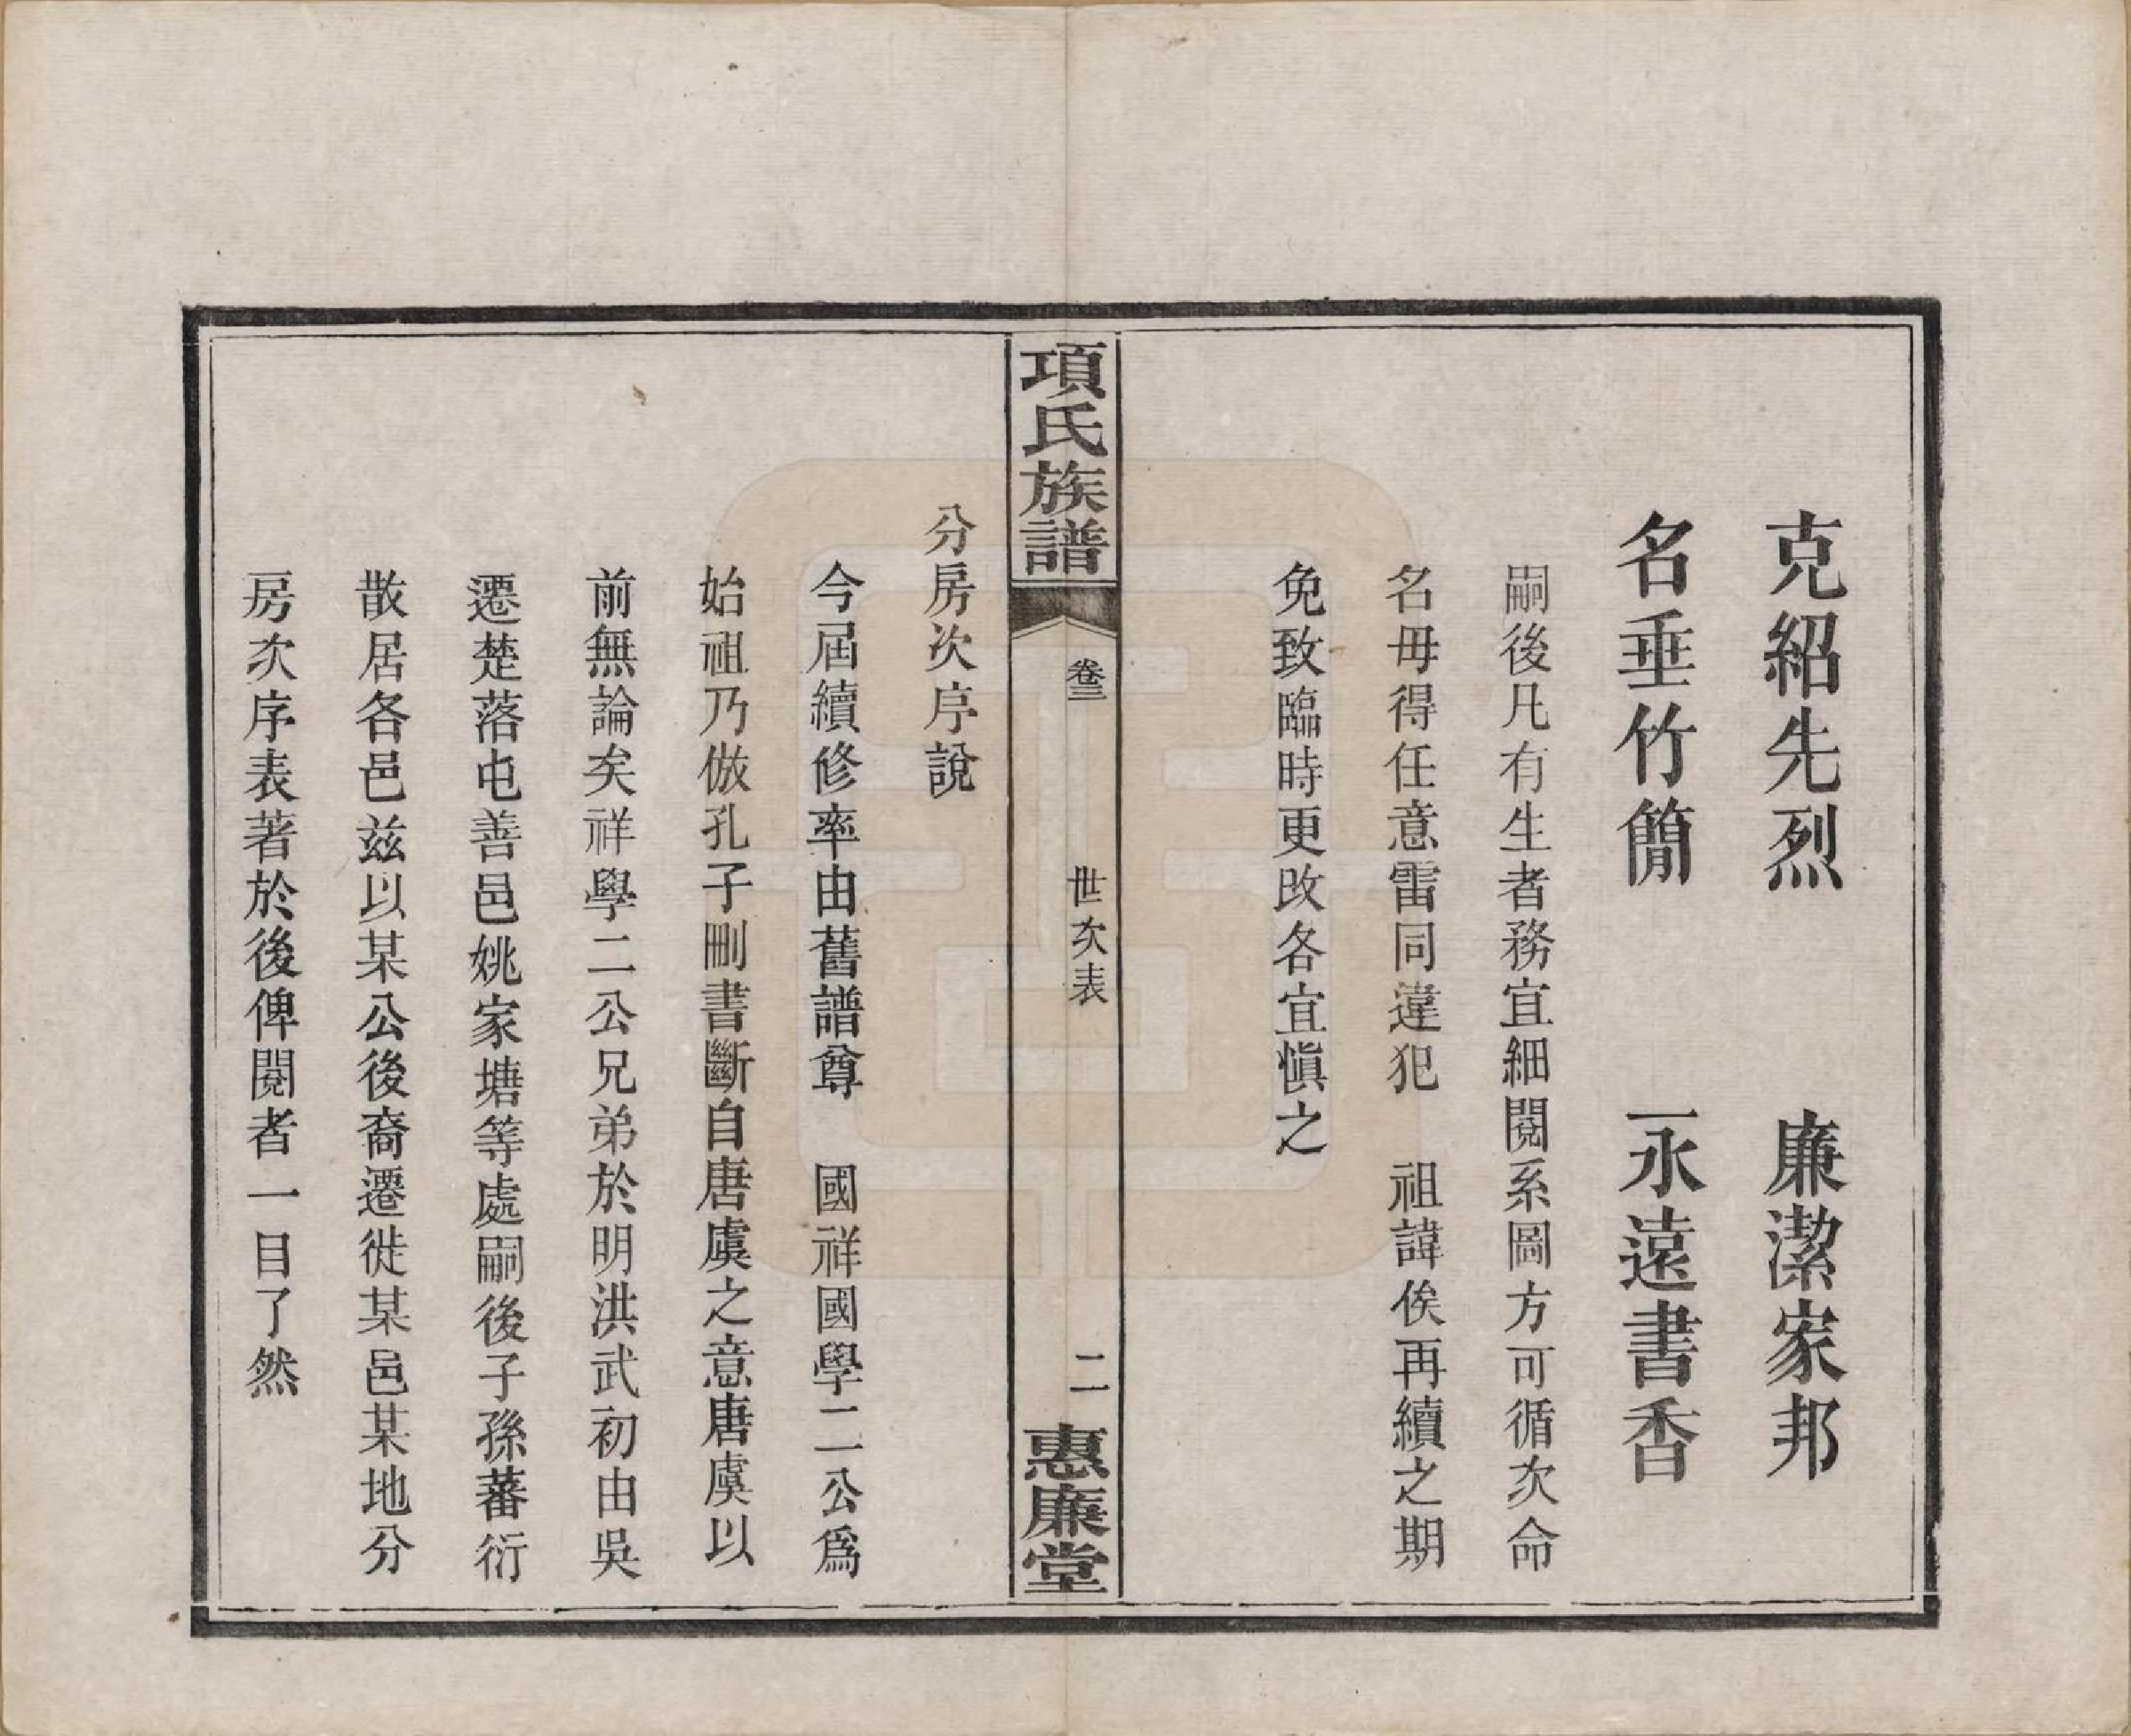 克紹先烈　廉潔家邦
名垂竹簡　永遠書香
嗣後凡有生者務宜細閱系圖方可循次命
名毋得任意雷同違犯　祖諱俟再續之期
免致臨時更改各宜愼之
項氏族譜　卷三　世次表　二　惠廉堂
分房次序說
今屆續修率由舊譜尊　國祥國學二公爲
始祖乃倣孔子刪書斷自唐虞之意唐虞以
前無論矣祥學二公兄弟於明洪武初由吳
遷楚落屯善邑姚家塘等處嗣後子孫蕃衍
散居各邑玆以某公後裔遷徙某邑某地分
房次序表著於後俾閱者一目了然